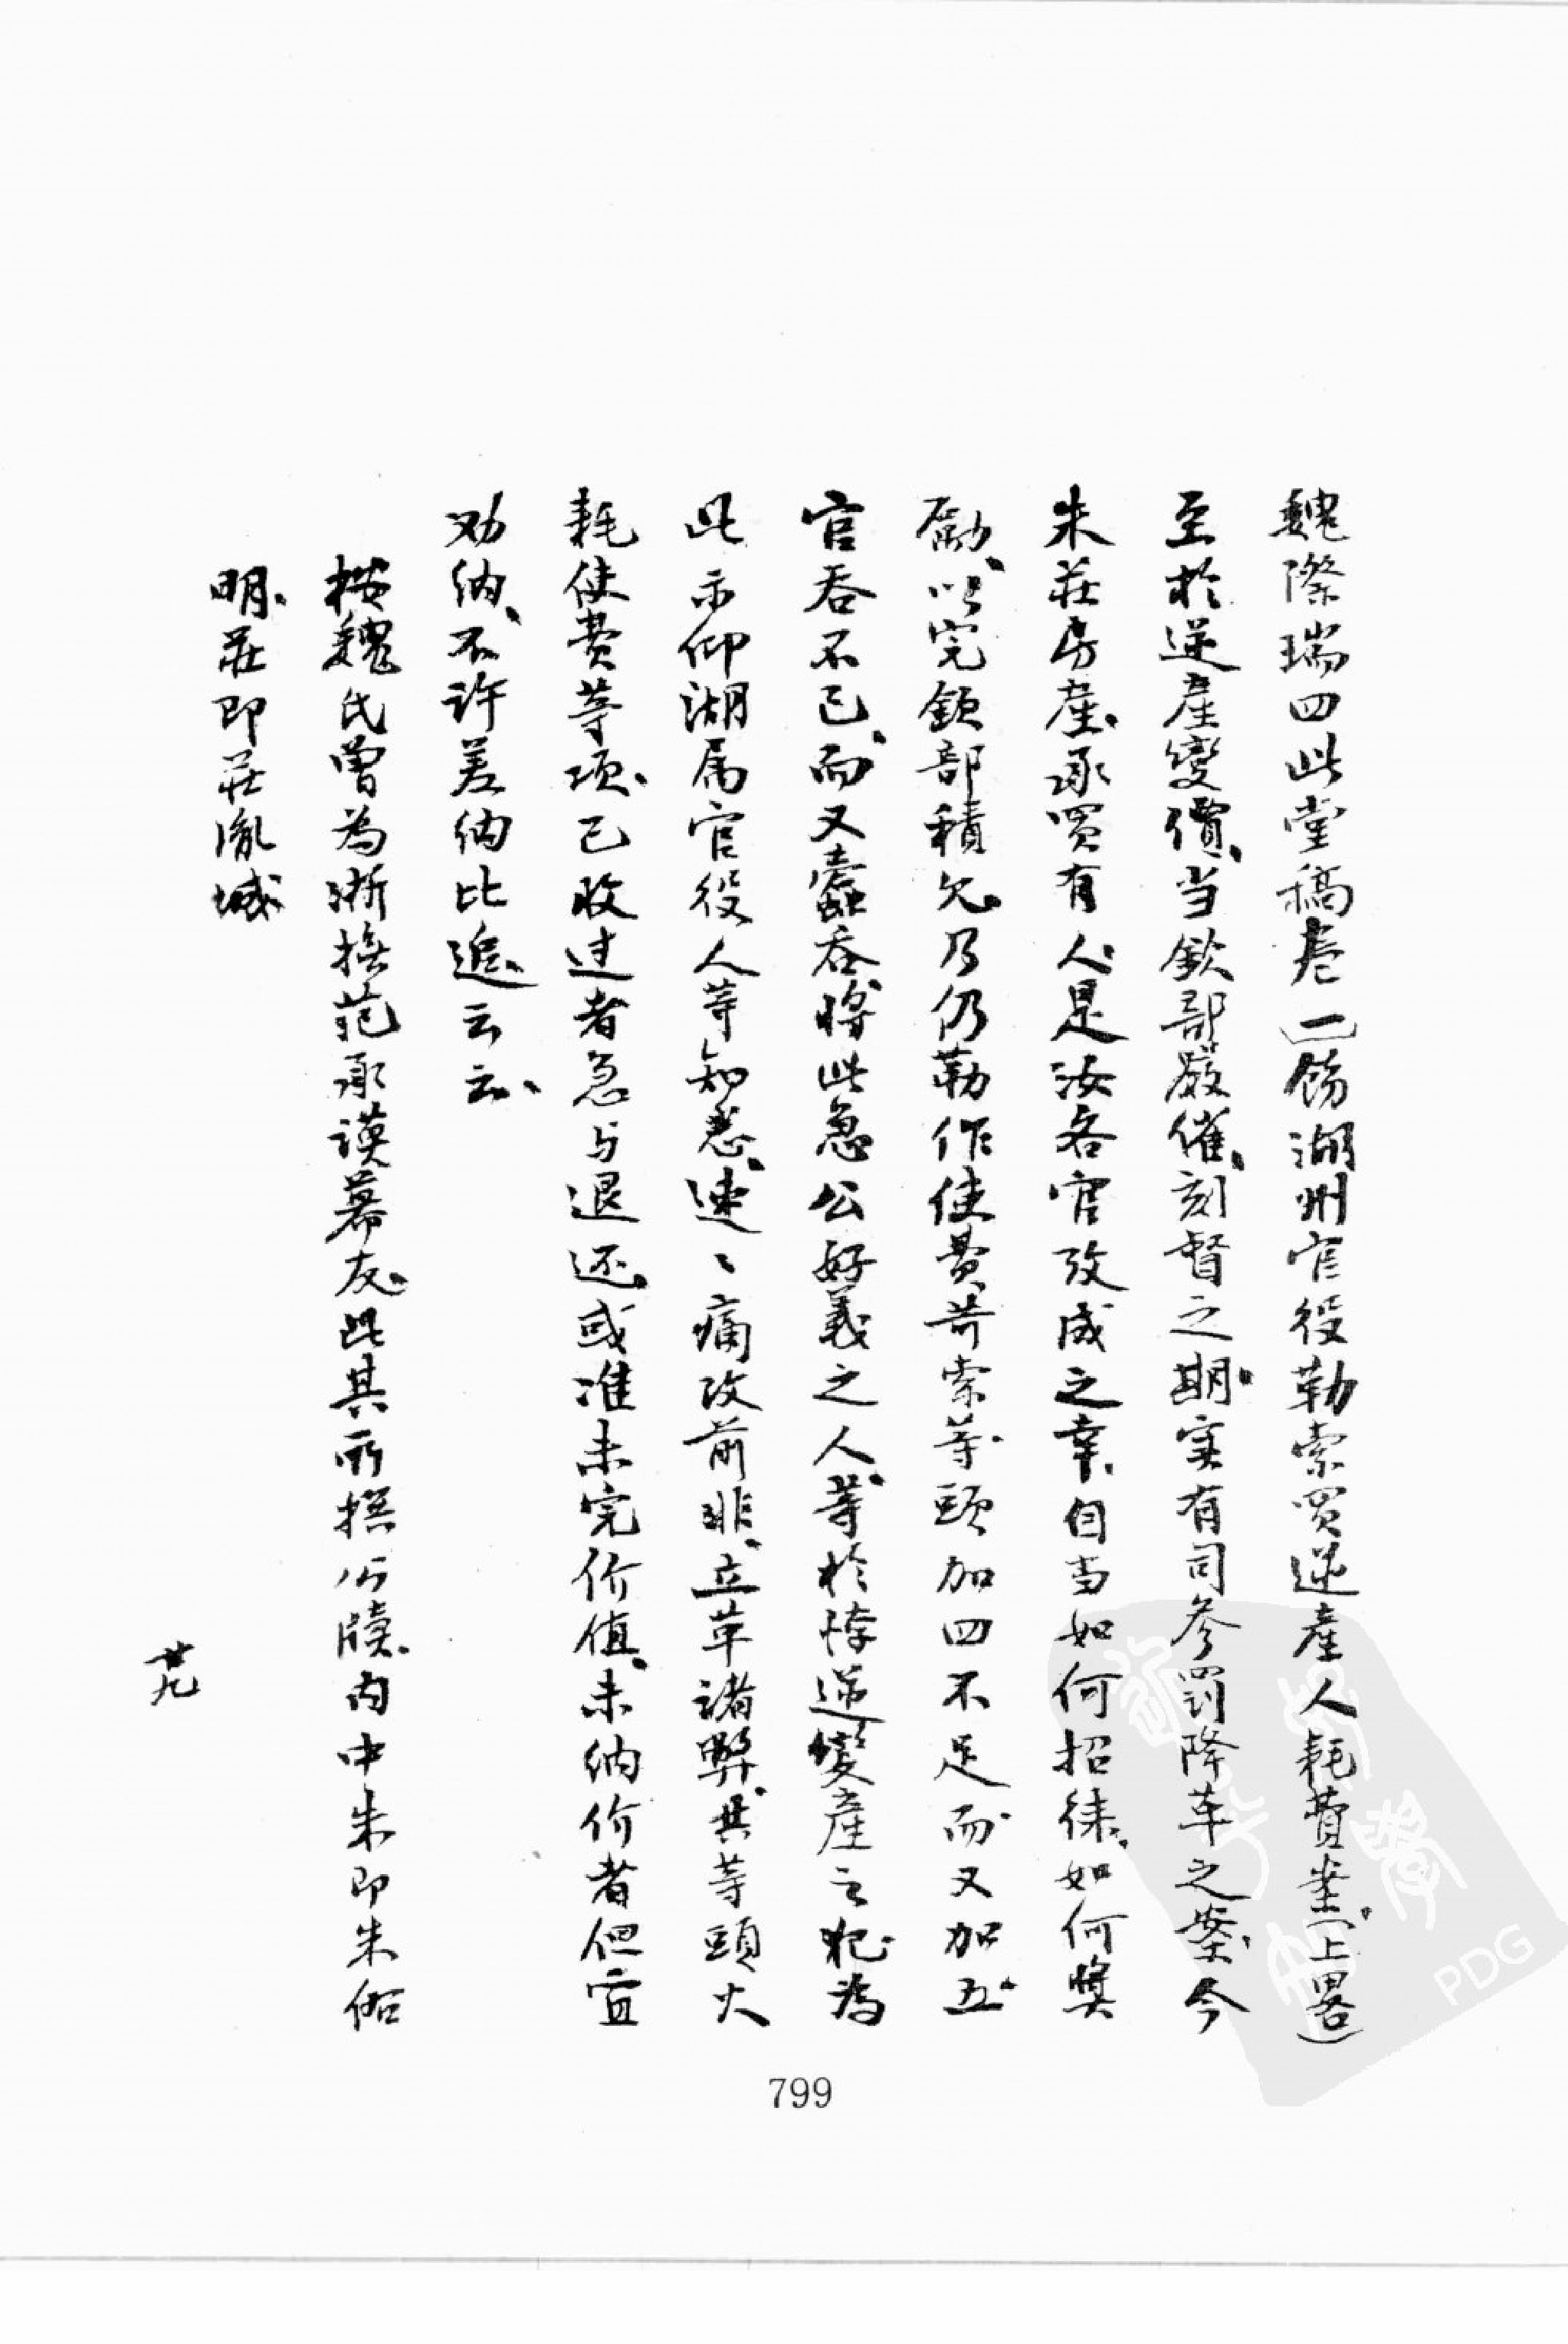 魏際瑞四此堂稿卷一飭湖州官役勒索買逆產人耗費案（上畧）
至於逆產變價、当欽部嚴催、刻督之期、实有司参罰降革之案、今
朱莊房產、承買有人、是汝各官攷成之幸、自当如何招徠、如何奬
勵、以完欽部積欠、乃仍勒作使費苛索等頭加四不足而又加五、
官吞不已、而又蠹吞、将此急公好義之人、等於悖逆變產之犯、為
此示仰湖属官役人等知悉、速、痛改前非、立革諸弊、其等頭火
耗使費等项、已收过者急与退还、或准未完价值、未納价者但宜
劝納、不許差役比追、云云、
按魏氏曾為浙撫范承謨幕友、此其所撰公牘、内中朱即朱佑
明、莊即莊胤城
廿九
799
PDG